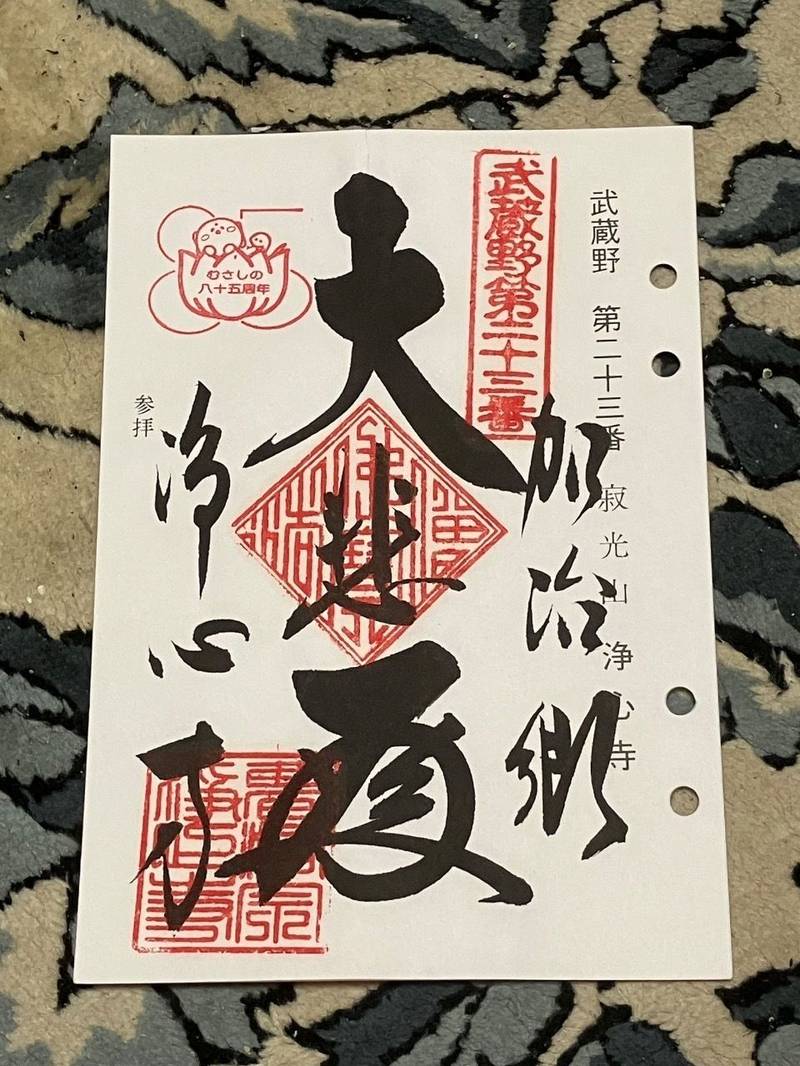 武蔵野 第二十三番 寂光山 浄心寺
武蔵野第二十三番
加治郷
大悲殿
むさしの
八十五周年
参拝
浄心寺